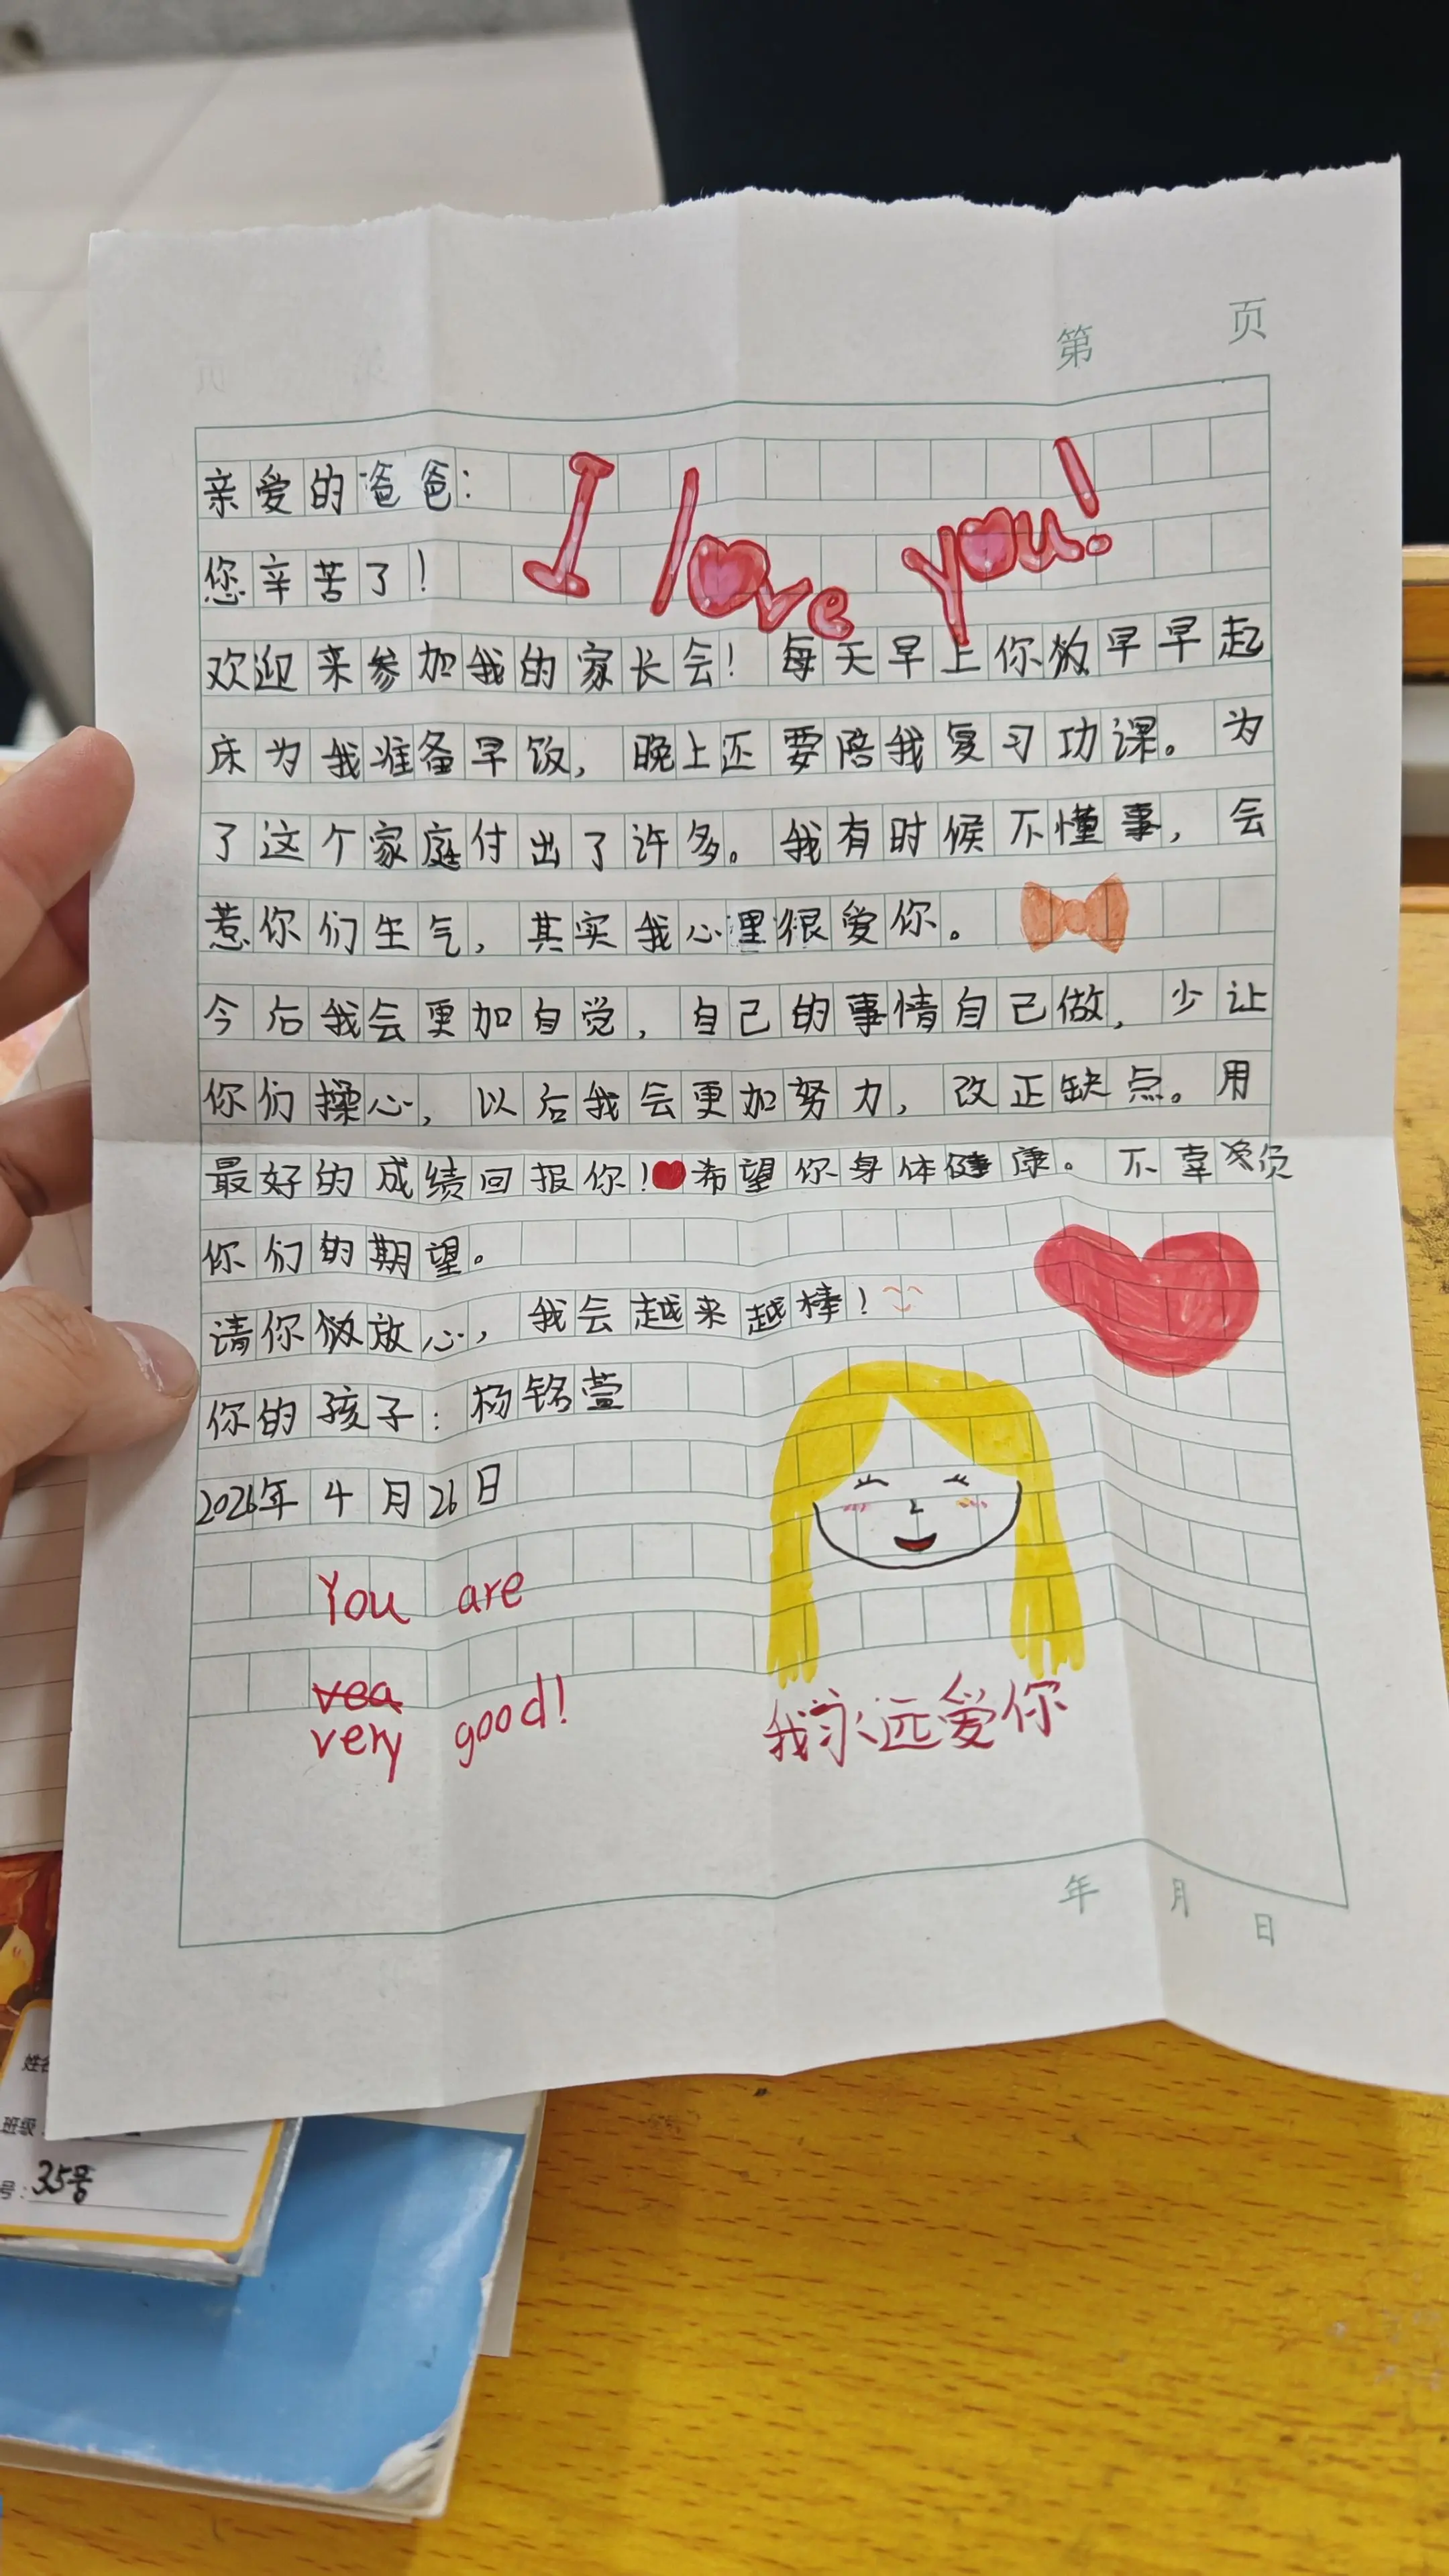 第 页
亲爱的爸爸：
I love you!
您辛苦了！
欢迎来参加我的家长会！每天早上你都早早起
床为我准备早饭，晚上还要陪我复习功课。为
了这个家庭付出了许多。我有时候不懂事，会
惹你们生气，其实我心里很爱你。
今后我会更加自觉，自己的事情自己做，少让
你们操心，以后我会更加努力，改正缺点。用
最好的成绩回报你！希望你身体健康。不辜负
你们的期望。
请你放心，我会越来越棒！
你的孩子：杨铭萱
2026年4月26日
You are
vea
very good!
我永远爱你
年 月 日
姓名
班级：
号：35号